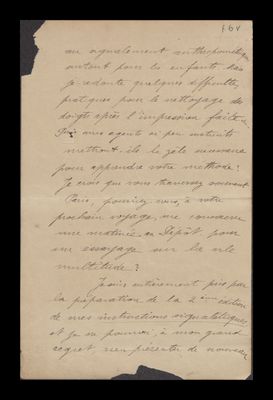 au signalement anthropométrique
autant pour les enfants. Mais
je redoute quelques difficultés
pratiques pour le nettoyage des
doigts après l'impression faite.
Puis mes agents si peu instruits
mettront-ils le zèle nécessaire
pour apprendre votre méthode?
Je crois que vous traversez souvent
Paris, pourriez-vous, à votre
prochain voyage, me consacrer
une matinée au Dépôt pour
un essayage sur la vile
multitude?
Je suis entièrement pris par
la préparation de la 2ème édition
de mes instructions signalétiques
et je ne pourrai, à mon grand
regret rien présenter de nouveau